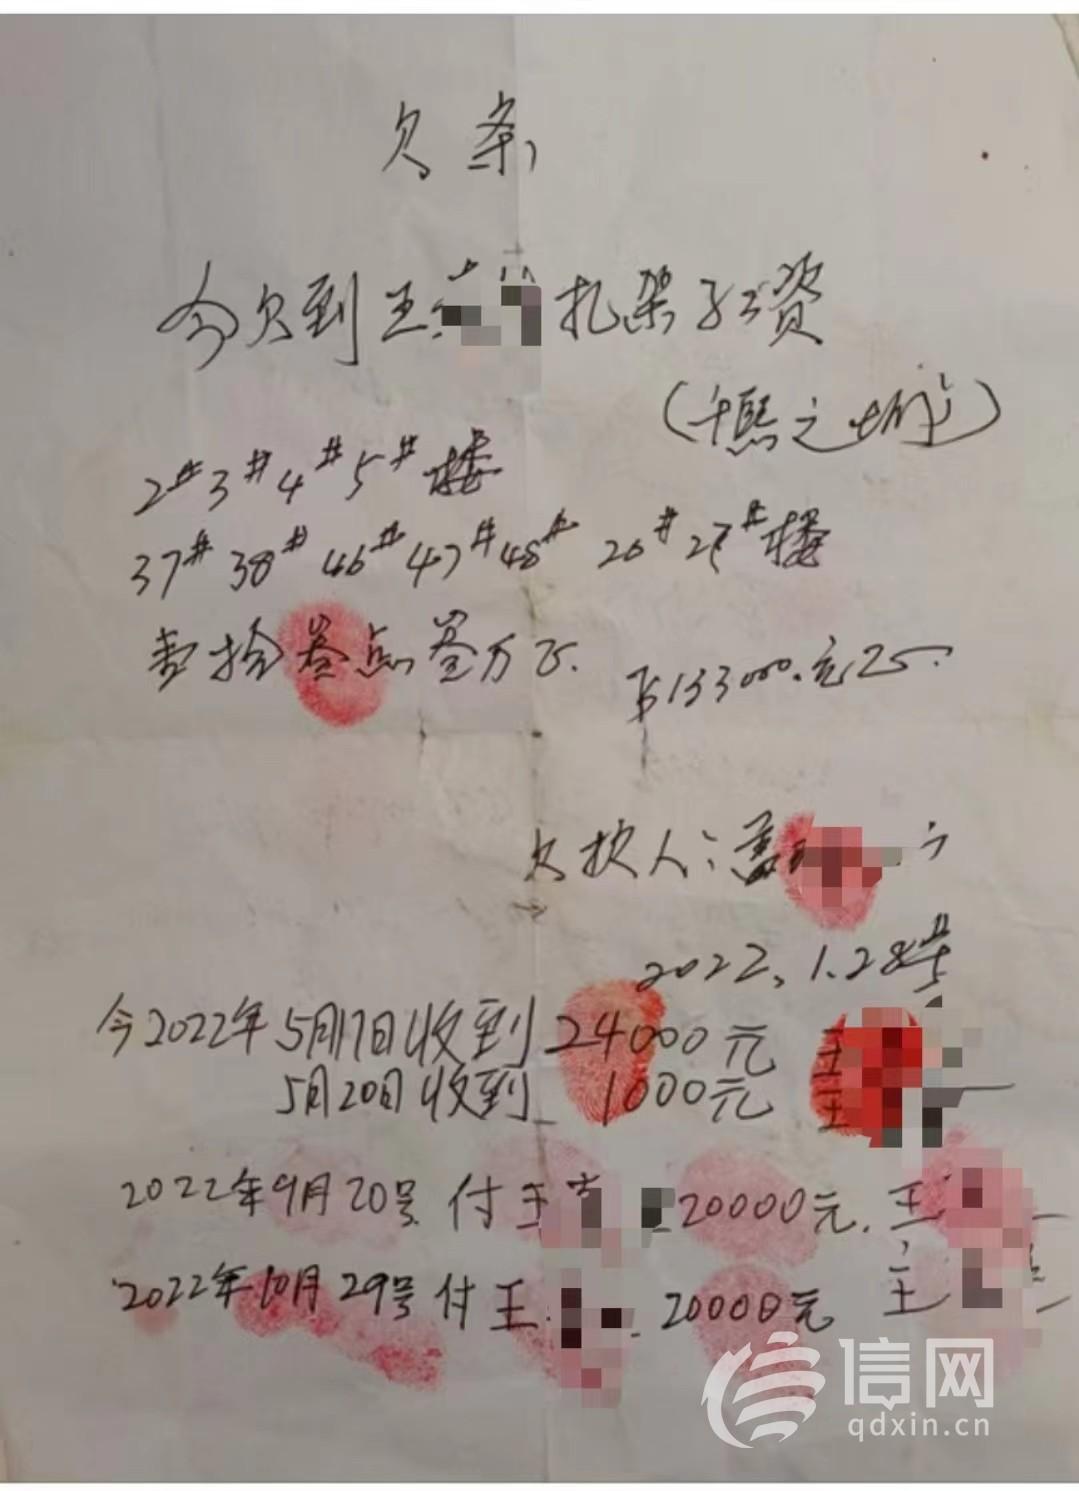 欠条
今欠到王 扎架子工资
(千熙之城)
2#3#4#5#楼
37#38#46#47#48# 26#27#楼
壹拾叁点叁万元. ¥133000.元
欠款人:
2022.1.28号
今2022年5月17日收到24000元 王
5月20日收到 1000元 王
2022年9月20号付王 20000元. 王
2022年10月29号付王 20000元 王
信网
qdxin.cn